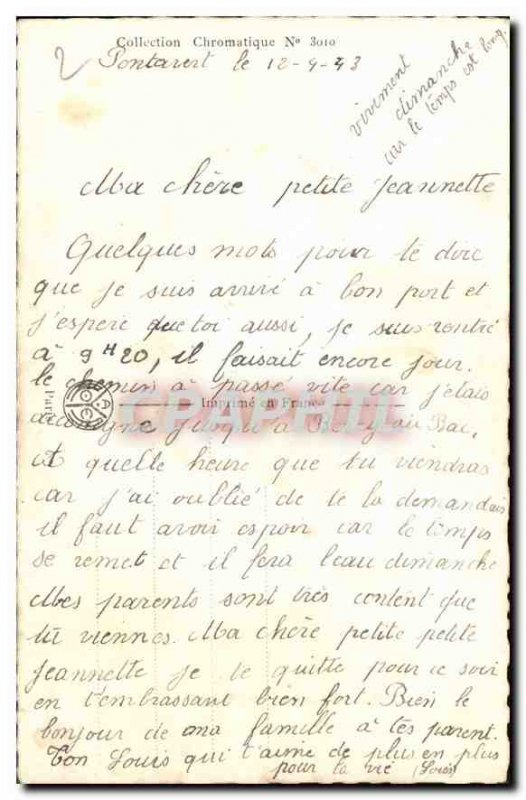 Collection Chromatique No 3010
2
Pontavert le 12-9-43
vivement
dimanche
car le temps est long
Ma chère petite Jeannette
Quelques mots pour te dire
que je suis arrivé à bon port et
j'espère que toi aussi, je suis rentré
à 9H20, il faisait encore jour.
le chemin à passé vite car j'étais
Imprimé en France
Paris
jusqu'à Berry au Bac,
et quelle heure que tu viendras
car j'ai oublié de te la demandais
il faut avoir espoir car le temps
se remet et il fera beau dimanche
Mes parents sont très content que
tu viennes. Ma chère petite petite
Jeannette je te quitte pour ce soir
en t'embrassant bien fort. Bien le
bonjour de ma famille à tes parent.
Ton Louis qui t'aime de plus en plus
pour la vie (Louis)
CPAPHIL